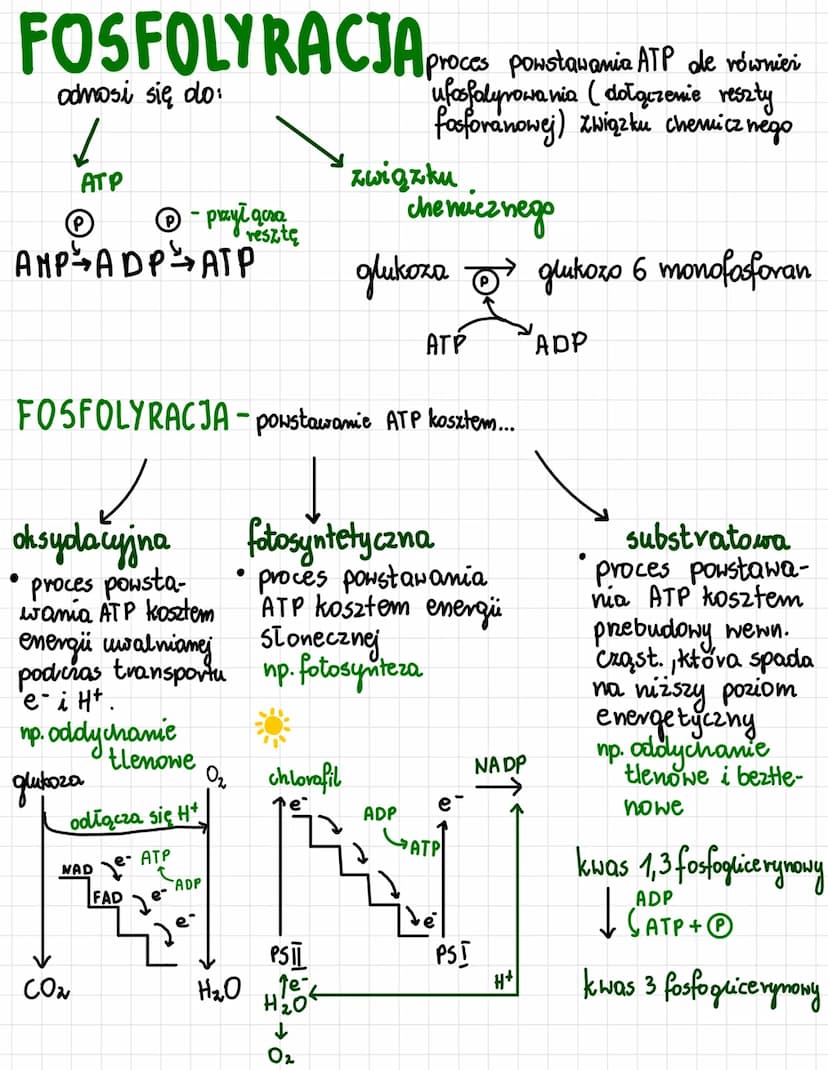 FOSFOLYRACJA
proces powstawania ATP ale również
ufosfolyrowania (dołączenie reszty
fosforanowej) związku chemicznego
odnosi się do:
ATP
P
P - przyłącza
resztę
AMP → ADP → ATP
związku
chemicznego
glukoza → glukozo 6 monofosforan
P
ATP ADP
FOSFOLYRACJA - powstawanie ATP kosztem...
oksydacyjna
• proces powsta-
wania ATP kosztem
energii uwalnianej
podczas transportu
e⁻ i H⁺.
np. oddychanie
tlenowe
glukoza
O₂
odłącza się H⁺
NAD
e⁻ ATP
ADP
FAD
e⁻
e⁻
CO₂
H₂O
fotosyntetyczna
• proces powstawania
ATP kosztem energii
słonecznej
np. fotosynteza
chlorofil
NADP
e⁻
e⁻
ADP
ATP
e⁻
PSII
PSI
e⁻
H₂O
H⁺
O₂
substratowa
• proces powstawa-
nia ATP kosztem
przebudowy wewn.
cząst., która spada
na niższy poziom
energetyczny
np. oddychanie
tlenowe i beztle-
nowe
kwas 1,3 fosfoglicerynowy
ADP
ATP + P
kwas 3 fosfoglicerynowy